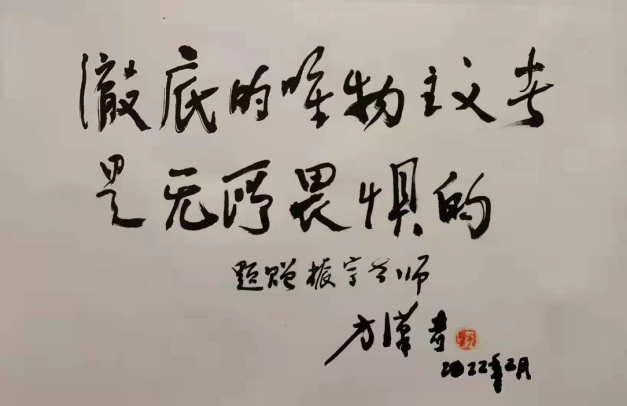 澈底的唯物主义者
是无所畏惧的
题赠振宇老师
方汉奇
2022年二月